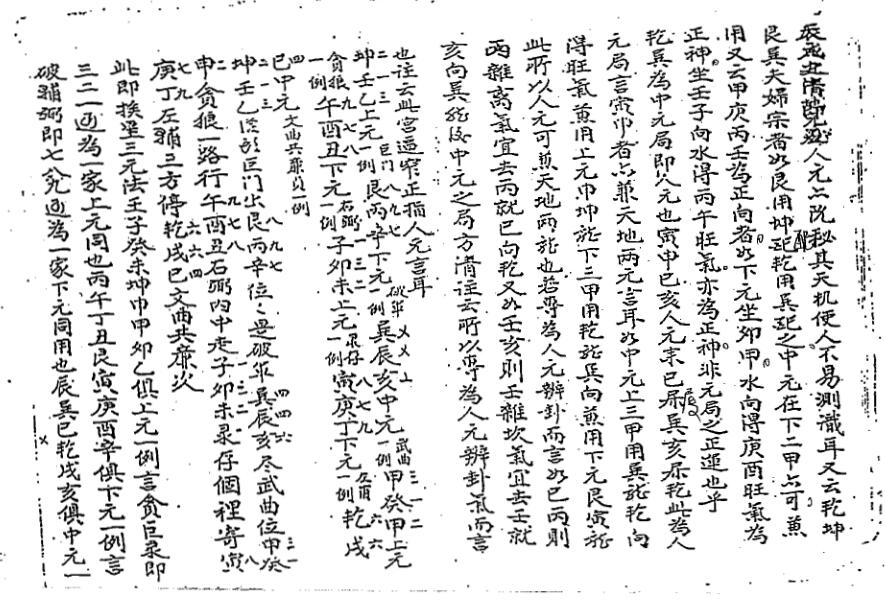 辰戌丑潘曾兄必人元亦沉秘其天机使人不易測識耳又云乾坤
艮巽夫婦宗者如艮用坤配乾用巽配之中元在下二甲亦可兼
用又云甲庚丙壬為正向者如下元坐卯甲水向得庚酉旺氣為
正神坐壬子向水得丙午旺氣亦為正神非元局之正運也乎
乾巽為中元局即人元也寅申巳亥人元未巳屬巽亥屬乾此為人
元局言寅申者亦兼天地兩元言耳如中元上三甲用巽龍乾向
得旺氣兼用上元申坤龍下三甲用乾龍巽向兼用下元艮寅龍
此所以人元可兼天地兩龍也若專為人元辨卦而言如巳丙則
丙雜离氣宜去丙就巳向乾又如壬亥則壬雜坎氣宜去壬就
亥向巽龍後中元之局方清注云所以專為人元辨卦氣而言
也注云此宮逼窄正指人元言耳
二一三 巨門 八九七 破軍 乂乂上 武曲 三一二
坤壬乙上元一例艮丙辛下元一例巽辰亥中元一例甲癸甲上元
貪狼 九七八 右弼 一三二 彔存 八七九 左甫 六六
一例午酉丑下元一例子卯未上元一例寅庚丁下元一例乾戌
四四
巳中元文曲共廉貞一例
二一三 八九七 四四六 三一
坤壬乙從頭巨門出艮丙辛位々是破軍巽辰亥尽武曲位甲癸
二 九七八 一三二 八
申貪狼一路行午酉丑右弼内中走子卯未彔存個裡寄寅
七九 六六四
庚丁左輔三方停乾戌巳文曲共廉次
此即挨星三元法壬子癸未坤申甲卯乙俱上元一例言貪巨彔即
三二一逓為一家上元同也丙午丁丑艮寅庚酉辛俱下元一例言
破輔弼即七八九逓為一家下元同用也辰巽巳乾戌亥俱中元一